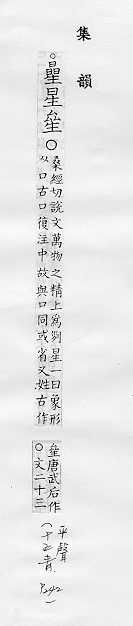 集韻
○曐星
○
桑經切說文萬物之精上為列星一曰象形
从口古口復注中故與口同或省又姓古作
唐武后作
○文二十三
(平聲
十五青 P242)